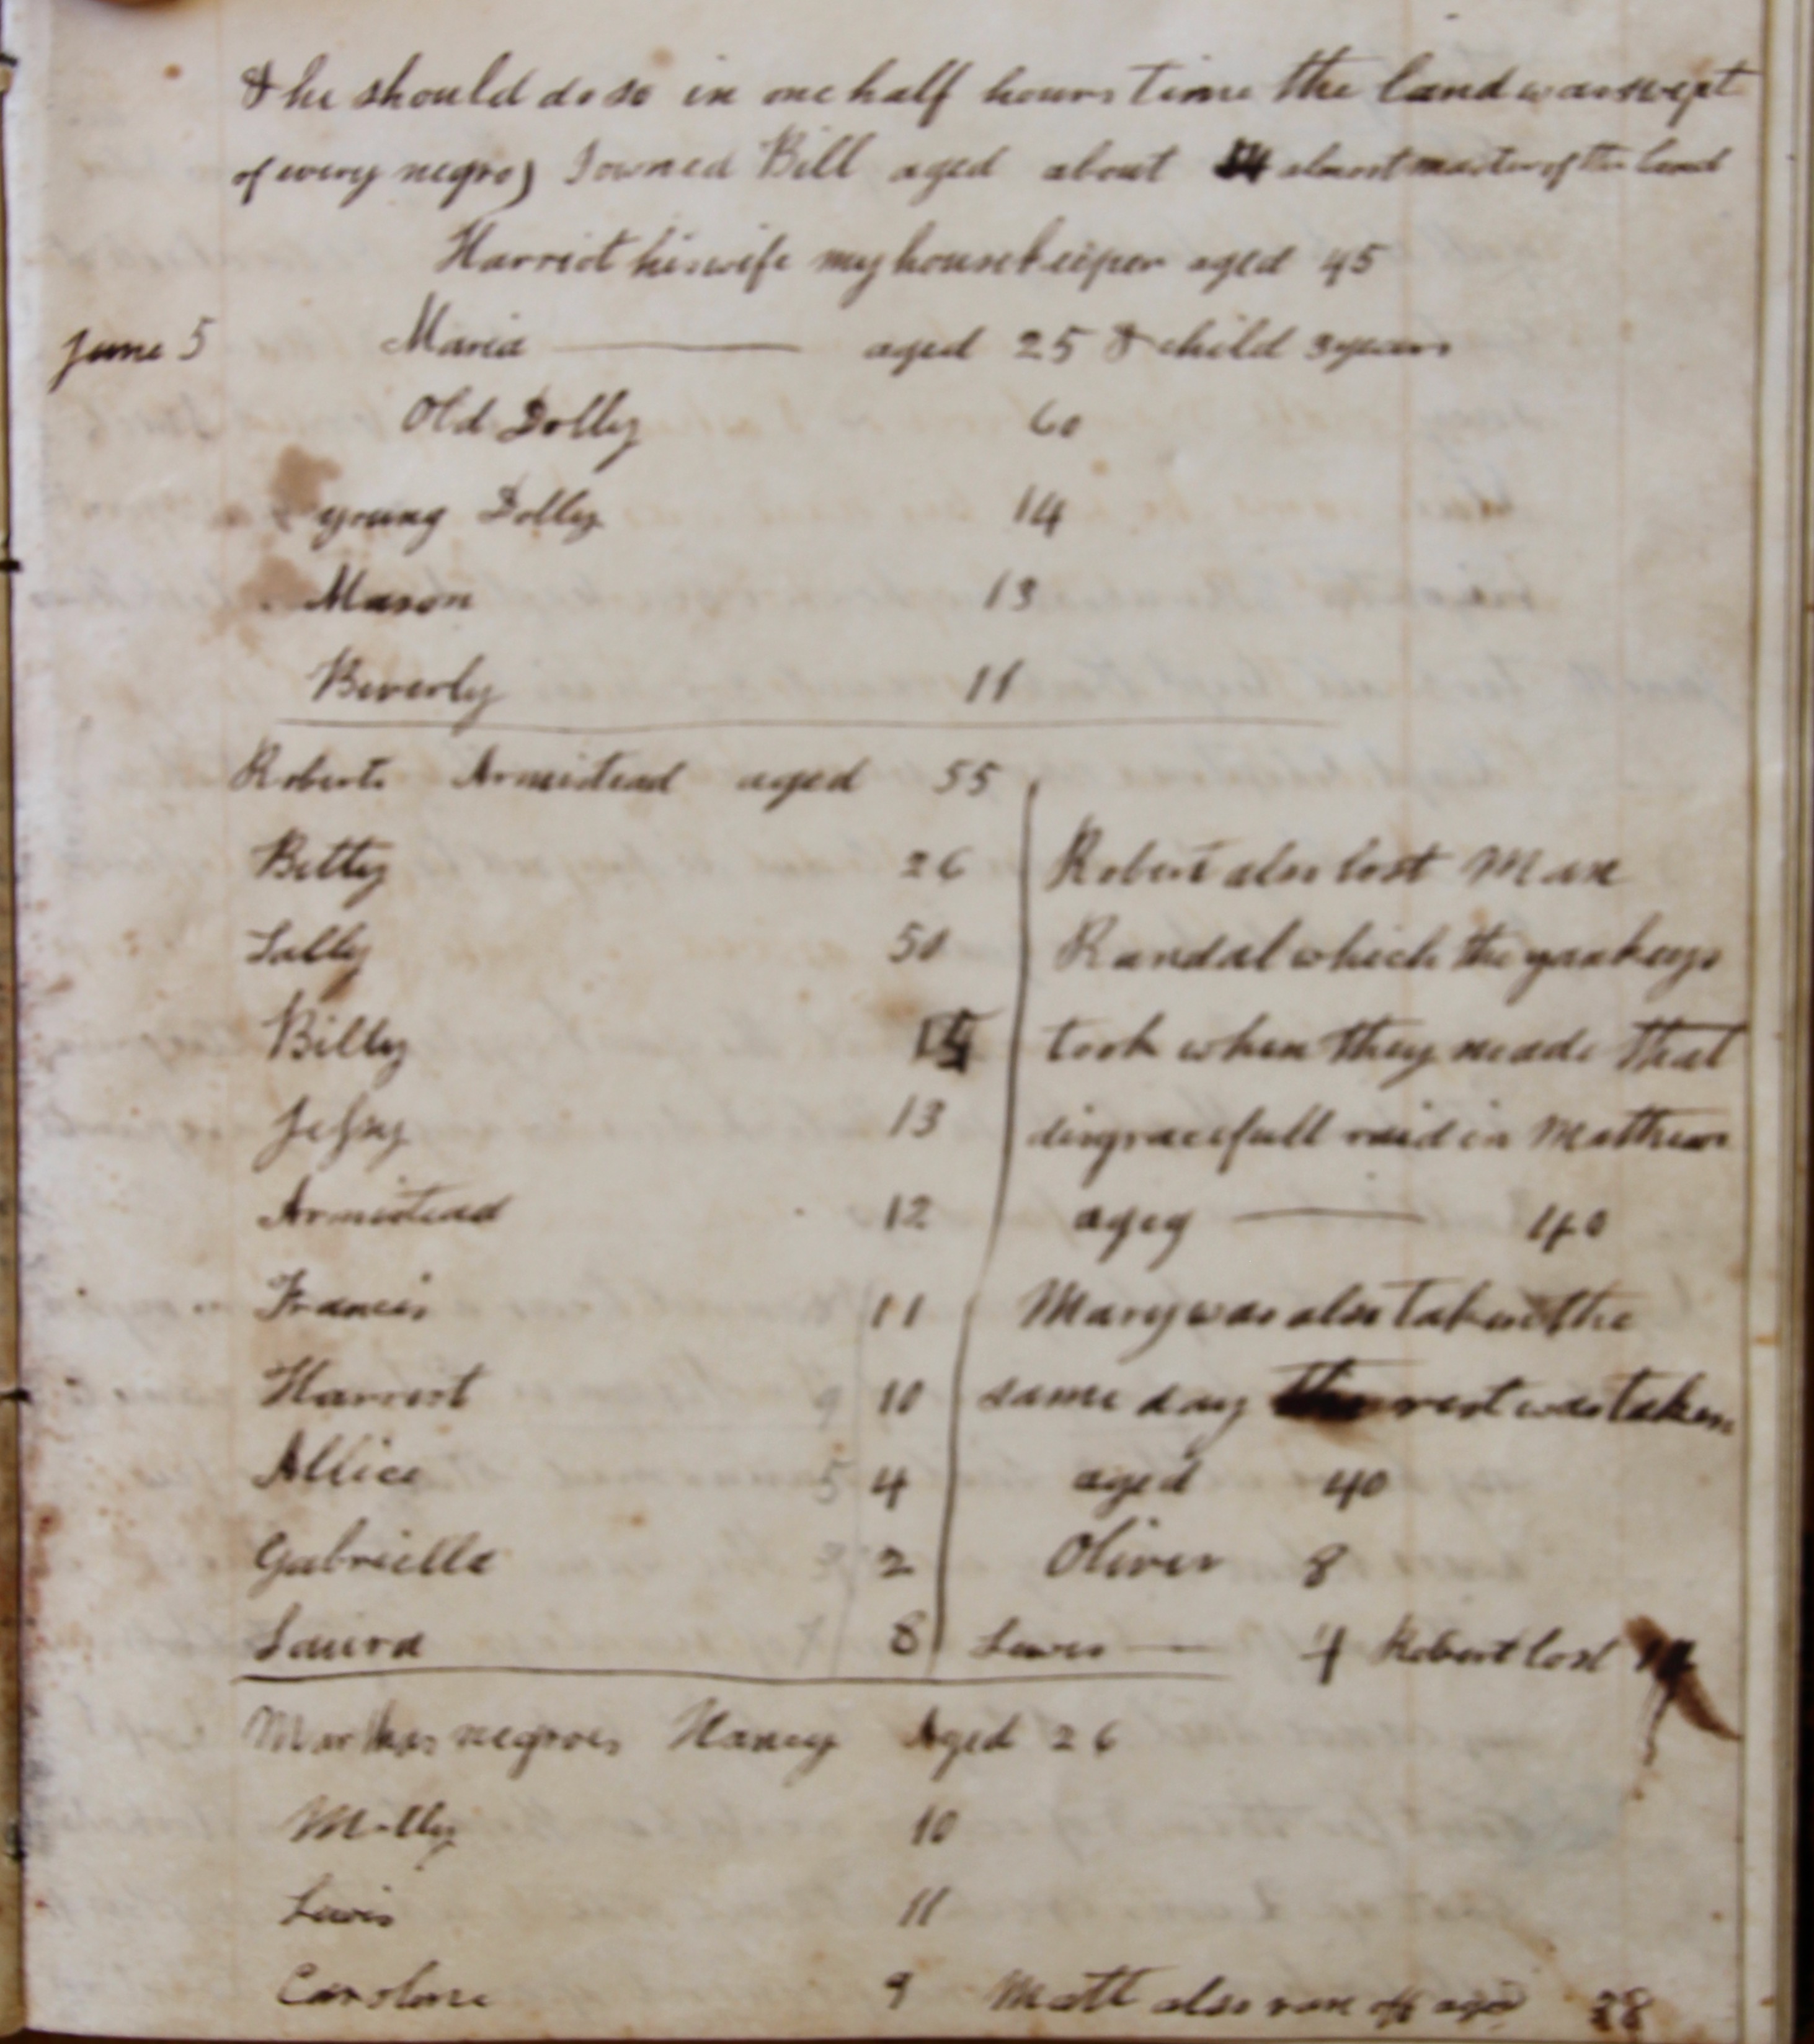 & he should do so in one half hours time the land was swept
of every negro) I owned Bill aged about almost master of the land
Harriot his wife my housekeeper aged 45
June 5 Maria — aged 25 & child 3 years
Old Dolly 60
young Dolly 14
Mason 13
Beverly 11
Roberts Armistead aged 55
Betty 26 Robert also lost Man
Sally 50 Randal which the yankeys
Billy took when they made that
Jessy 13 disgracefull raid in Mathews
Armistead 12 agey — 40
Francis 11 Mary was also taken the
Harriot 10 same day the rest was taken
Allice 4 aged 40
Gabriella 2 Oliver 8
Laura 8 Lewis — 4 Robert lost
negroes Aged 26
Milly 10
Lewis 11
Caroline 9 Matt also ran off aged 28